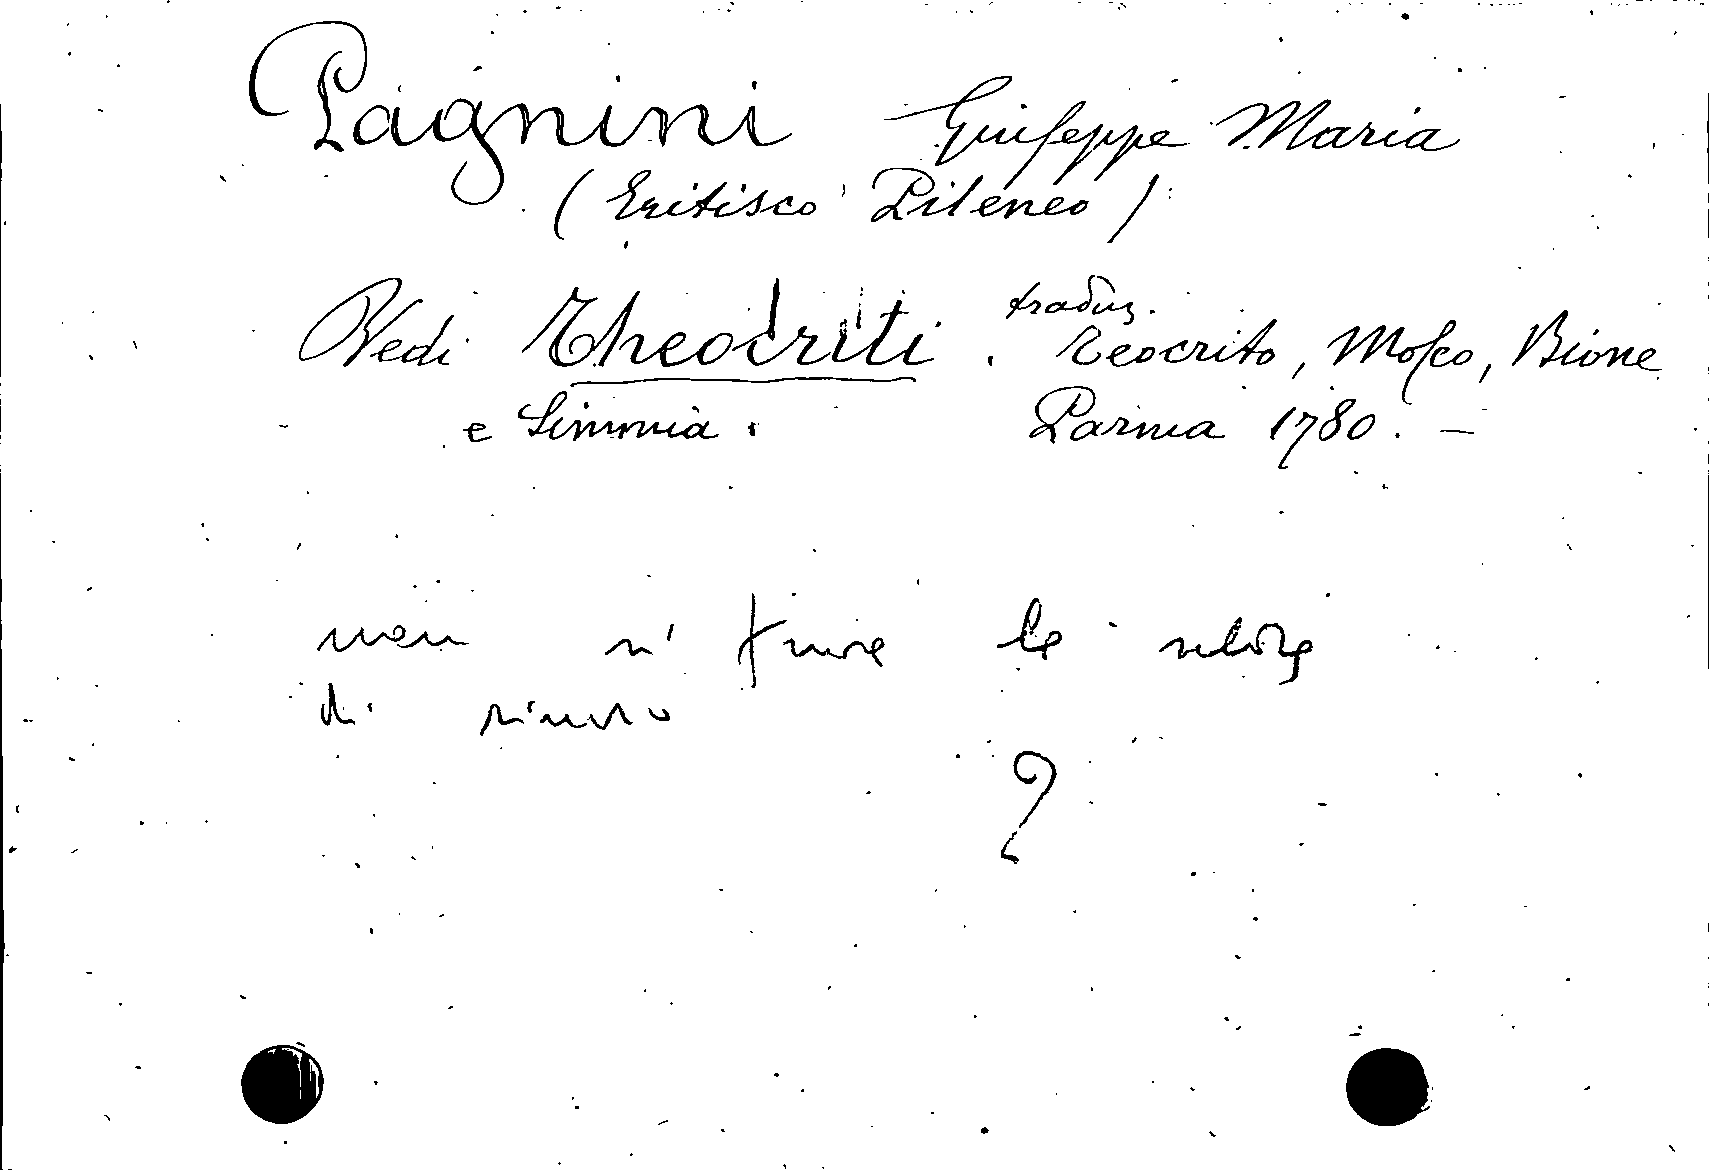 Pagnini Giuseppe Maria
(Eritisco Pileneo)
Vedi Theocriti. traduz. Teocrito, Mosco, Bione
e Simmia. Parma 1780. -
non si trova la scheda
di rinvio
?